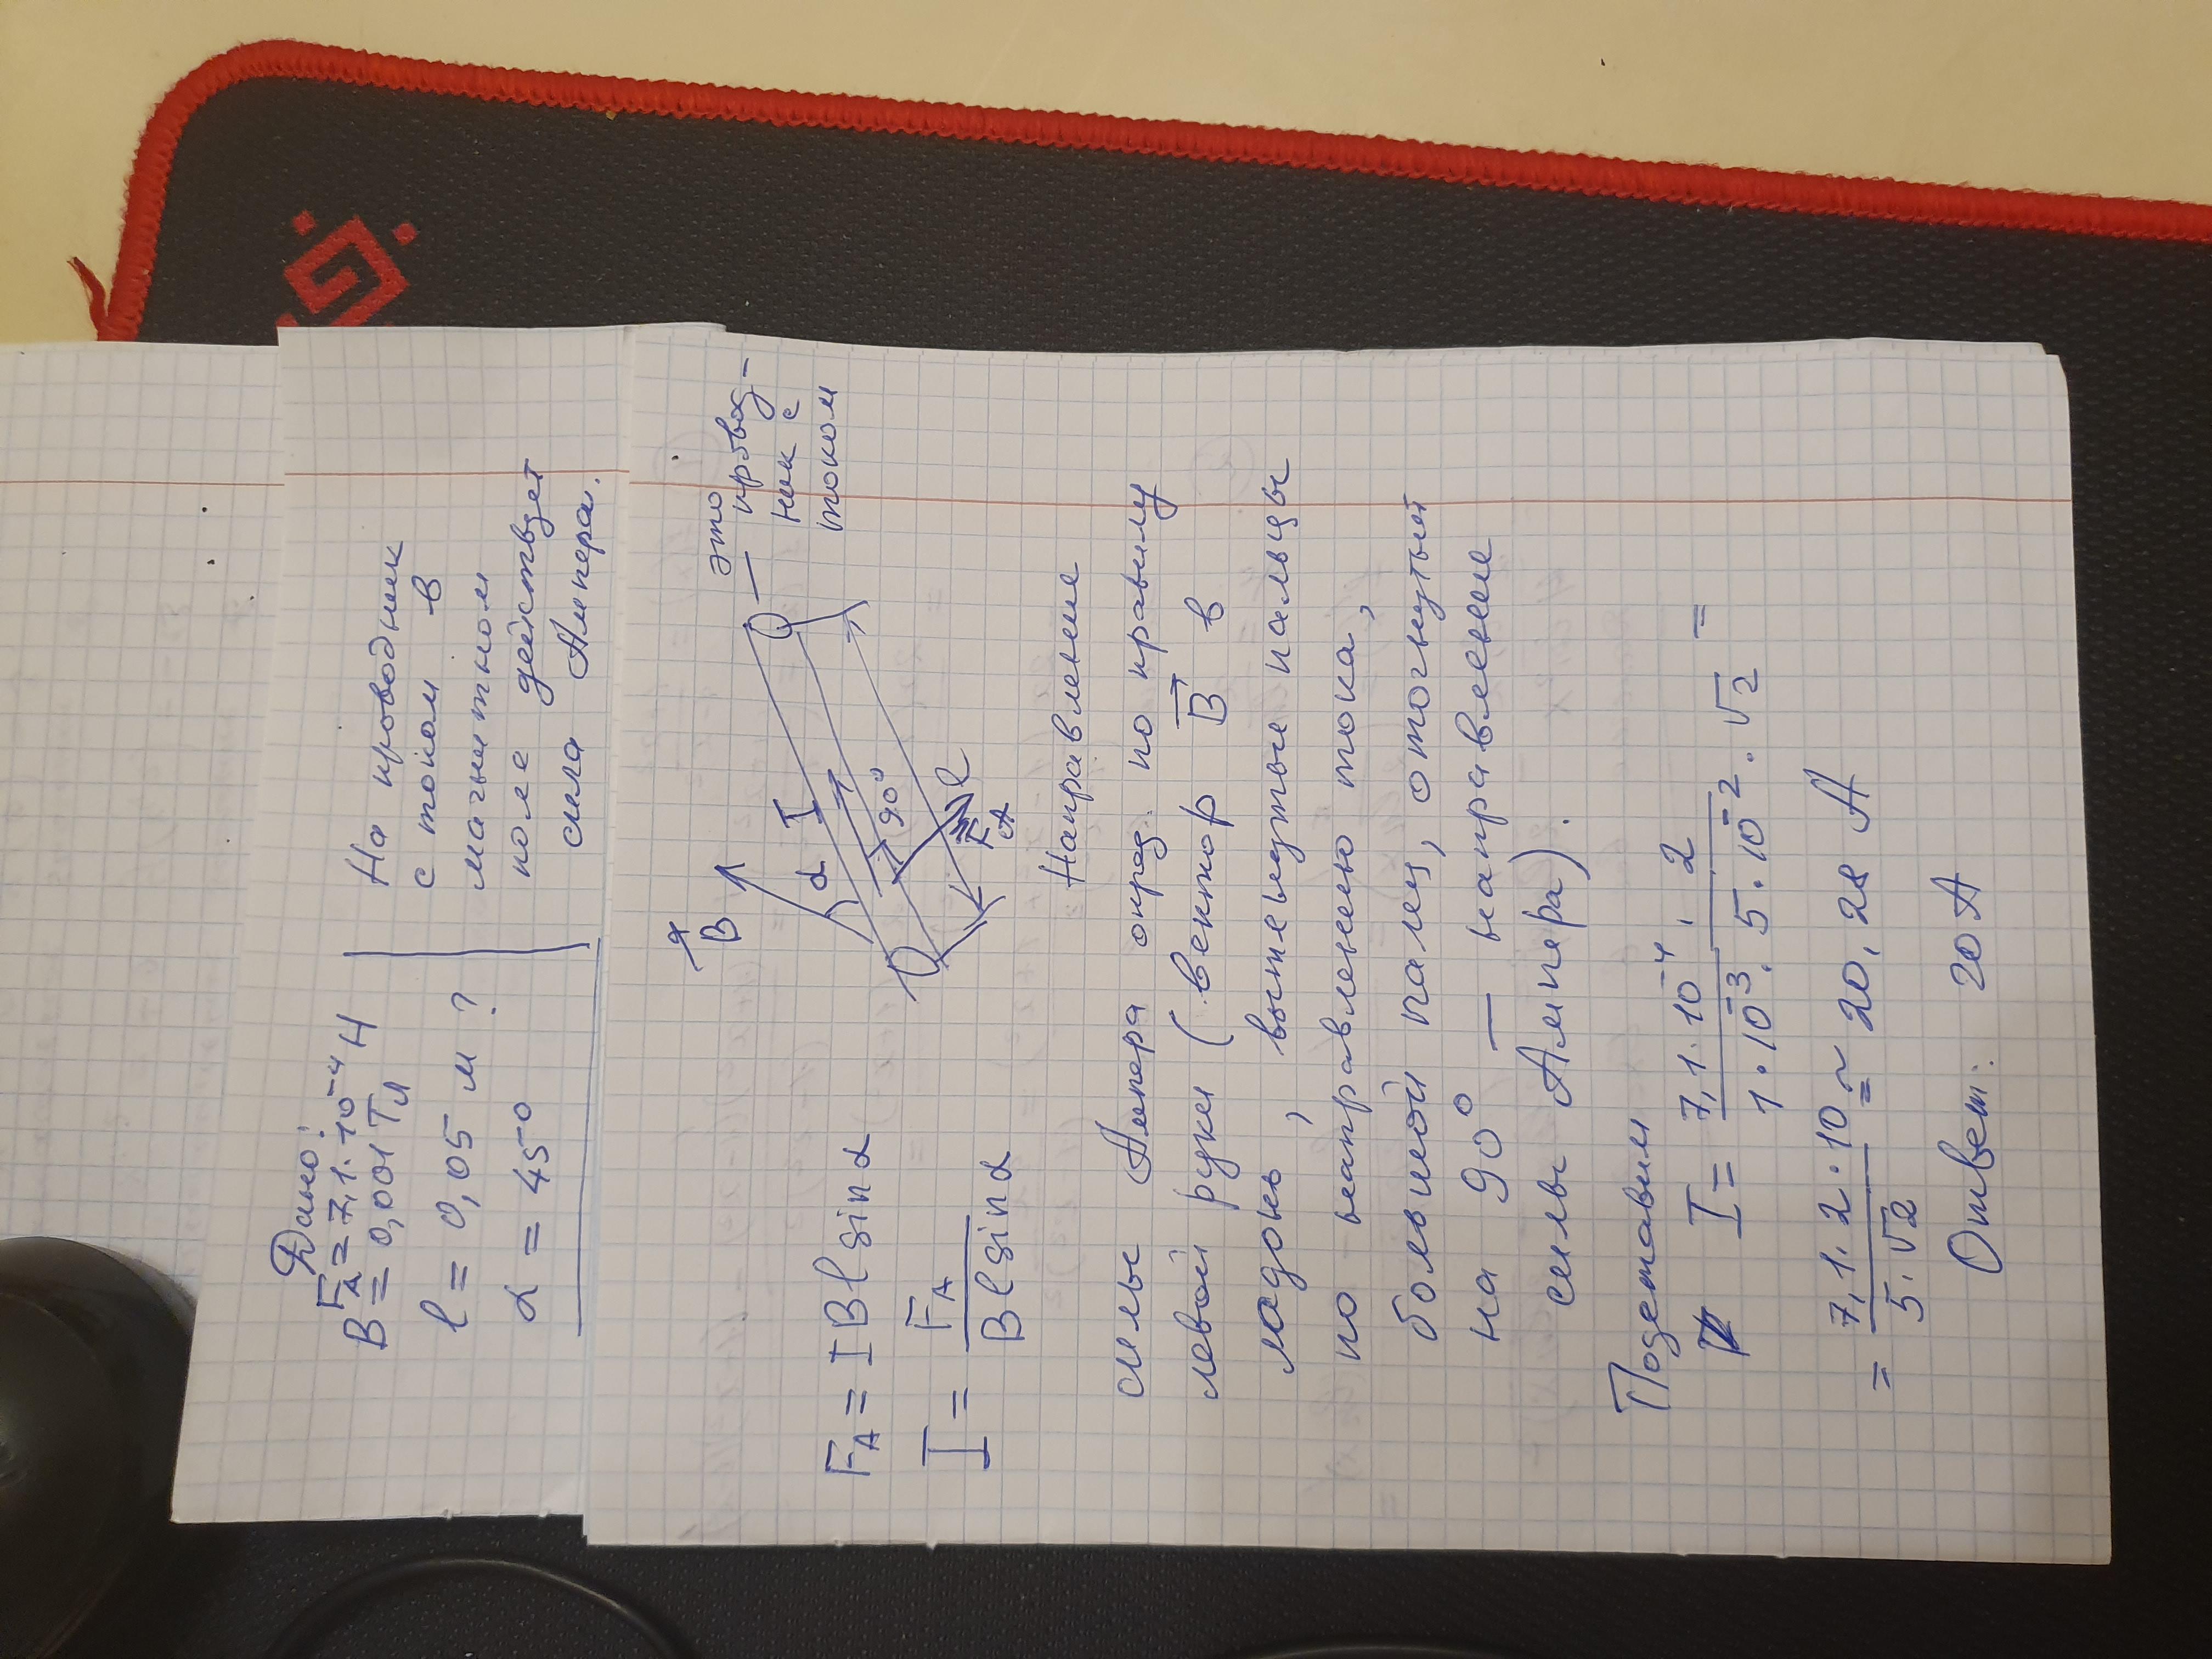 Дано:
F_A = 7,1·10⁻⁴ Н
B = 0,001 Тл
l = 0,05 м ?
α = 45°
На проводник
с током в
магнитном
поле действует
сила Ампера.
F_A = I B l sin α
I = F_A / B l sin α
B
α
I
90°
F_A
l
это
провод-
ник с
током
Направление
силы Ампера опред. по правилу
левой руки (вектор B⃗ в
ладонь, вытянутые пальцы
по направлению тока,
большой палец, отогнутый
на 90° — направление
силы Ампера).
Подставим
I = 7,1·10⁻⁴ · 2 / 1·10⁻³ · 5·10⁻² · √2 =
= 7,1·2·10 / 5·√2 ≃ 20,28 А
Ответ: 20 А